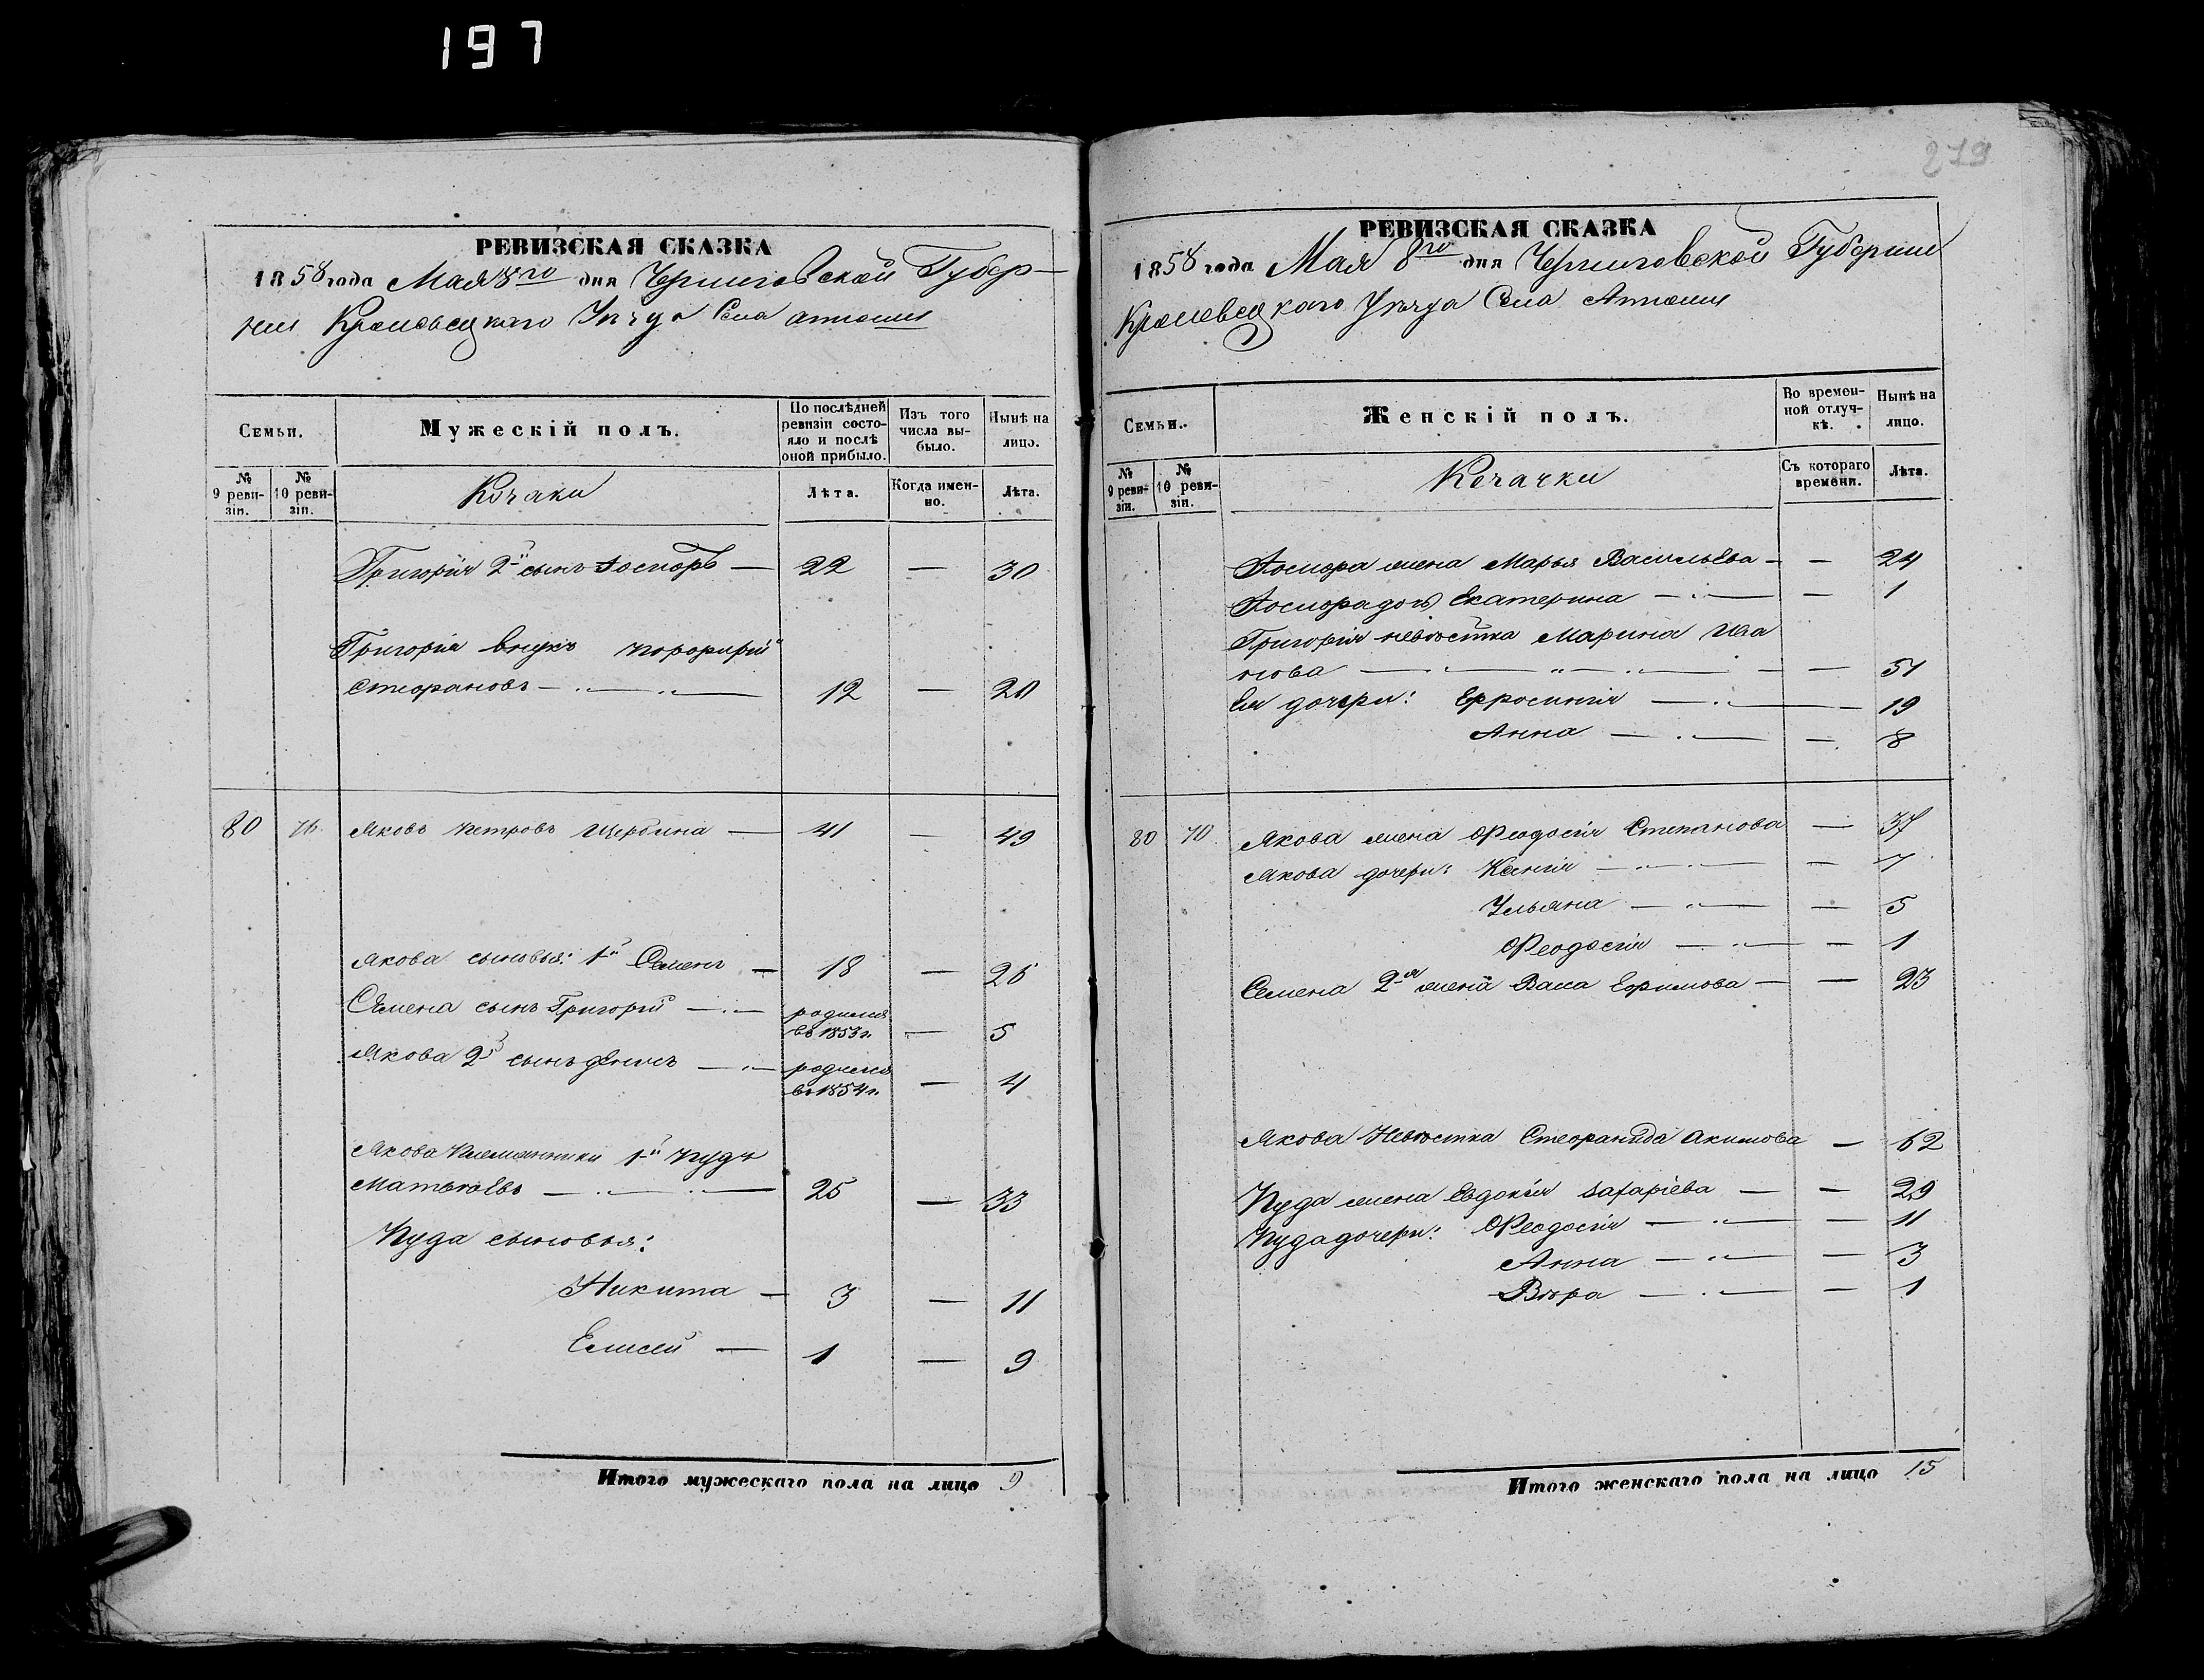 197
РЕВИЗСКАЯ СКАЗКА
1858 года Мая 8го дня Черниговской Губер-
ніи Кролевецкаго Уѣзда Села
Семьи.
Мужескій полъ.
По послѣдней ревизіи состояло и послѣ оной прибыло.
Изъ того числа выбыло.
Нынѣ на лицо.
№ 9 ревизіи.
№ 10 ревизіи.
Козаки
Лѣта.
Когда именно.
Лѣта.
Григорія 2й сынъ — 22 — 30
Григорія внукъ Порфирій
Стефановъ — 12 — 20
80 Яковъ Петровъ Щербина — 41 — 49
Якова сыновья: 1й Семенъ — 18 — 26
Семена сынъ Григорій — родился въ 1853 г. — 5
Якова 2й сынъ Денисъ — родился въ 1854 г. — 4
Якова племянники 1й Пудъ
Матвѣевъ — 25 — 33
Пуда сыновья:
Никита — 3 — 11
Елисей — 1 — 9
Итого мужескаго пола на лицо 9
279
РЕВИЗСКАЯ СКАЗКА
1858 года Мая 8го дня Черниговской Губерніи
Кролевецкаго Уѣзда Села
Семьи.
Женскій полъ.
Во временной отлучкѣ.
Нынѣ на лицо.
№ 9 ревизіи.
№ 10 ревизіи.
Козачки
Съ котораго времени.
Лѣта.
жена Марья Васильева — — 24
Екатерина — — 1
Григорія невѣстка Марина Ива
нова — — 51
Ея дочери: Ефросинія — 19
Анна — — 8
80 70 Якова жена Феодосія Степанова — 37
Якова дочери: Ксенія — — 7
Ульяна — — 5
Феодосія — — 1
Семена 2я жена Васса Ефимова — — 23
Якова Невѣстка Стефанида Акимова — 62
Пуда жена Евдокія Захаріева — — 29
Пуда дочери: Феодосія — — 11
Анна — — 3
Вѣра — — 1
Итого женскаго пола на лицо 15